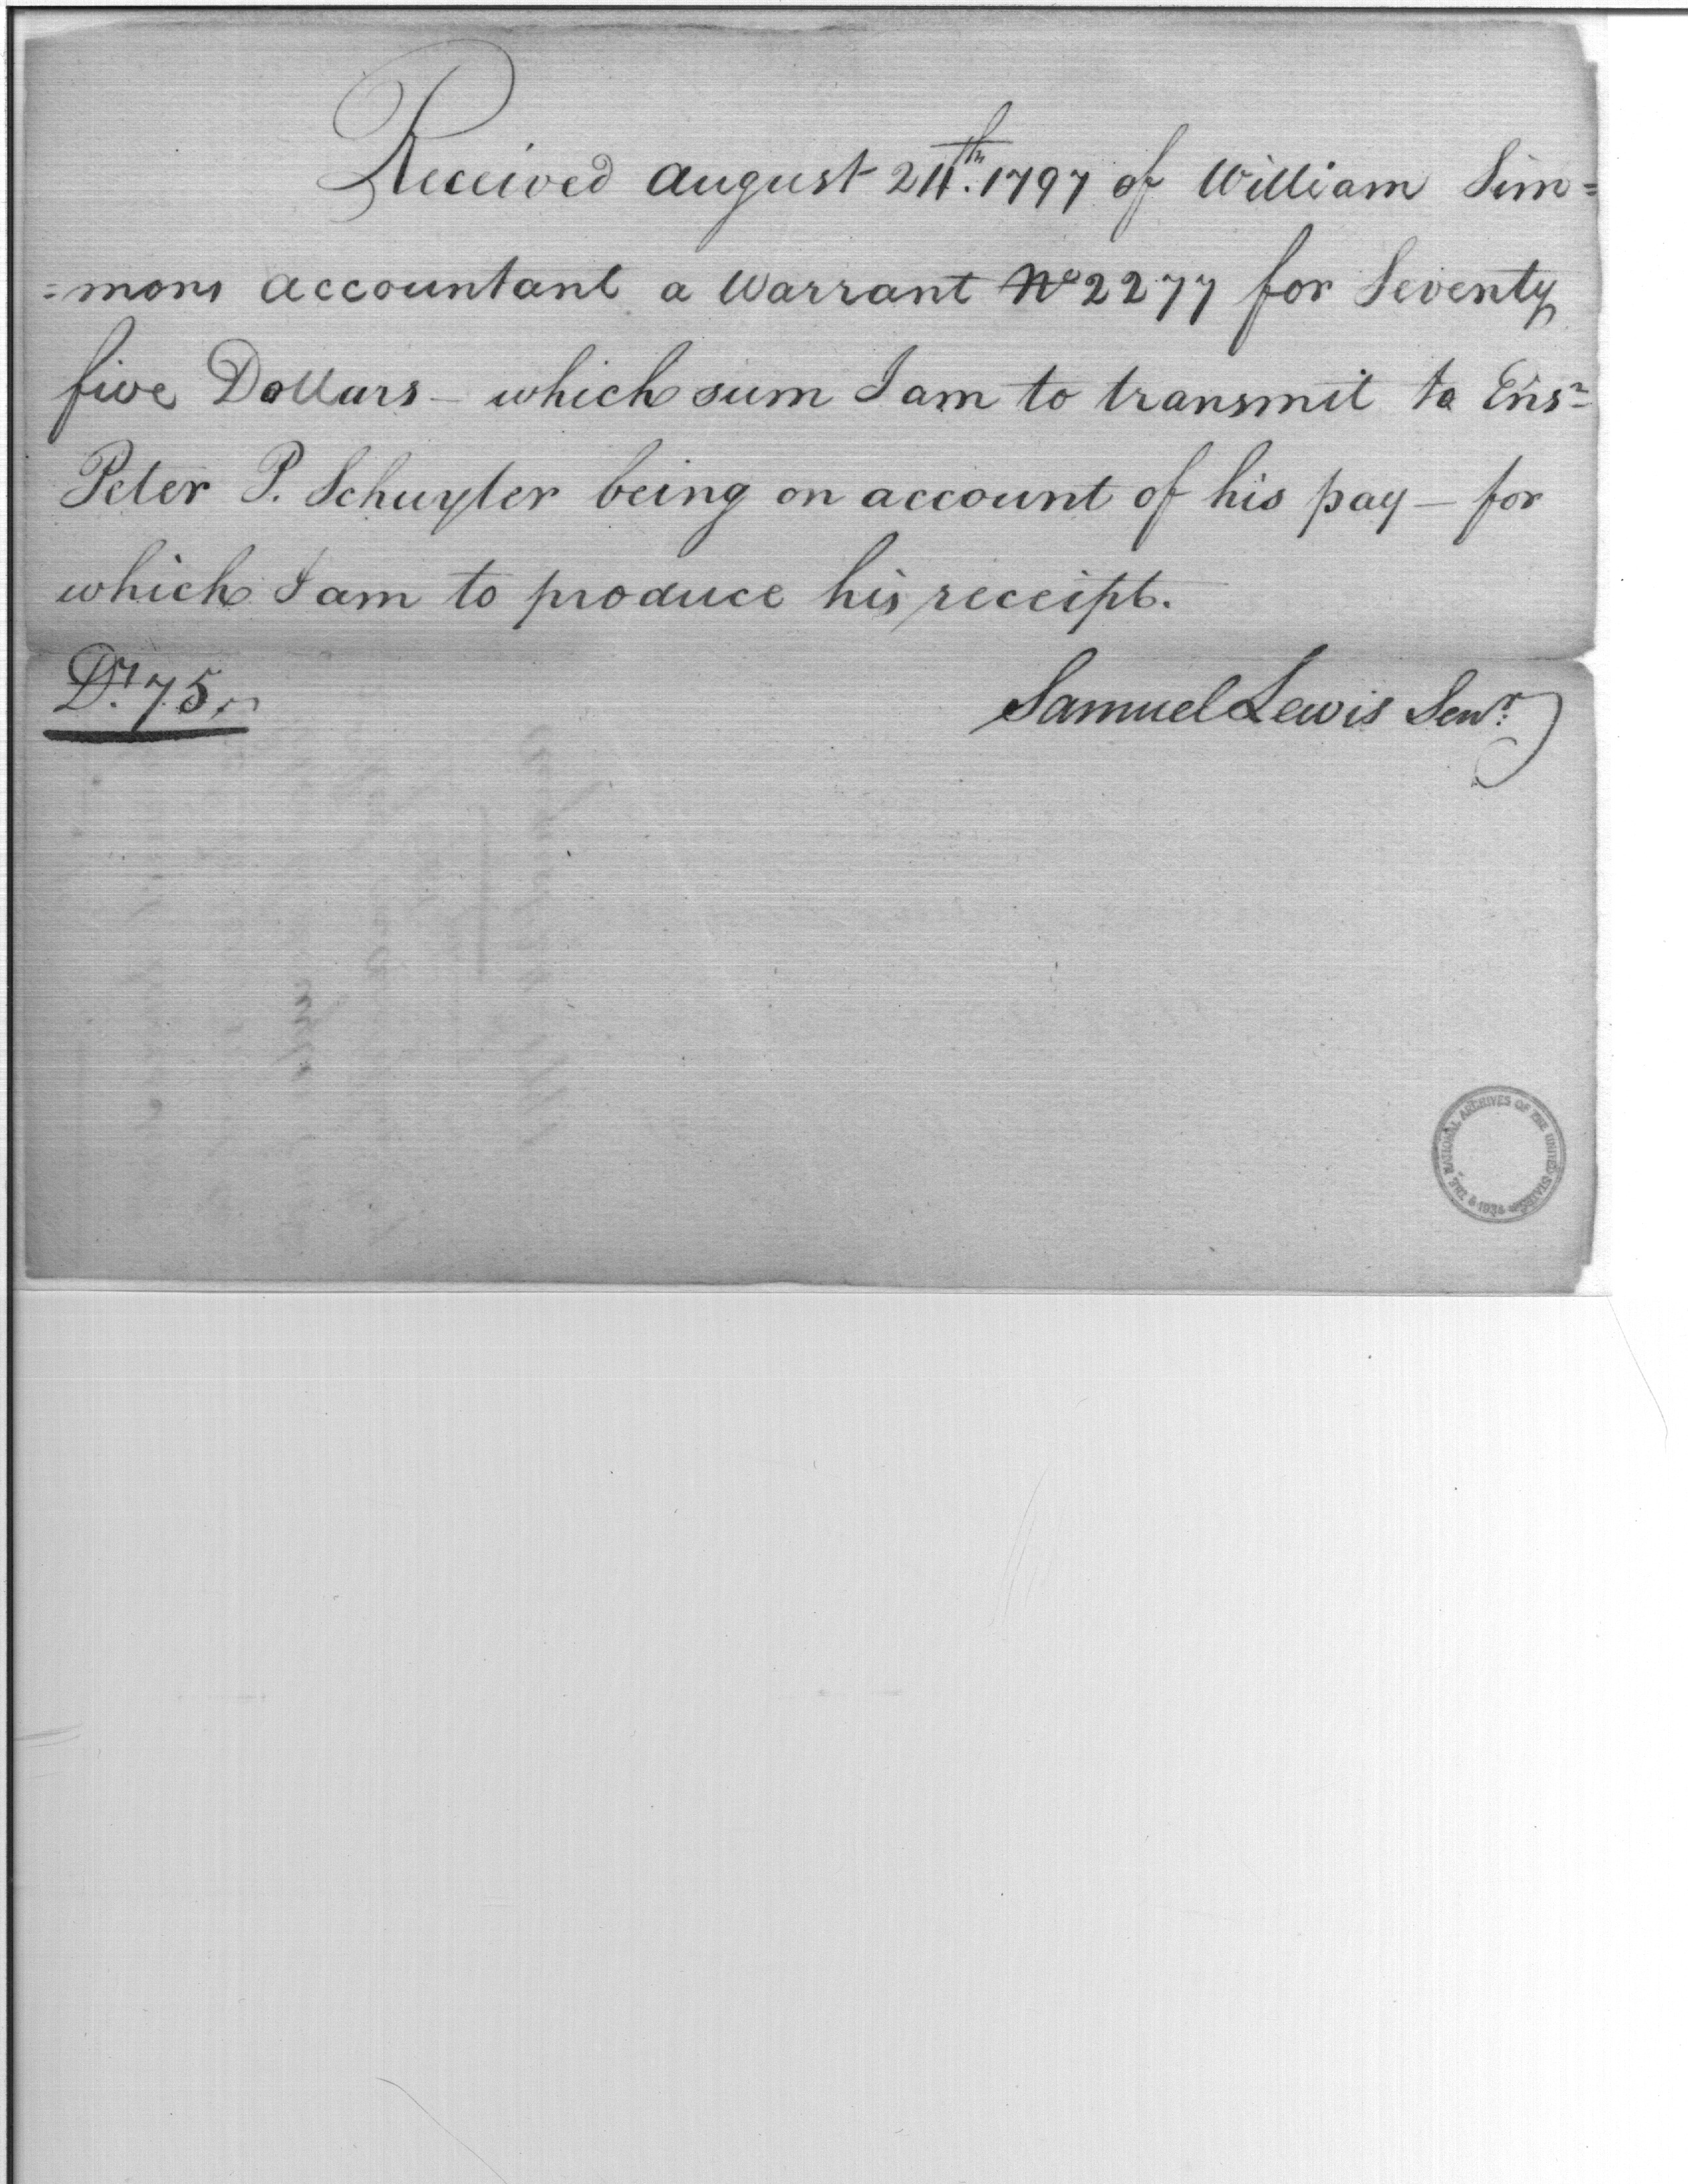 Received august 24th. 1797 of William Sim=
=mons accountant a Warrant No 2277 for Seventy
five Dollars – which sum I am to transmit to Ensn
Peter P. Schuyler being on account of his pay – for
which I am to produce his receipt.
Drs. 75.
Samuel Lewis Senr.
THE NATIONAL ARCHIVES OF THE UNITED STATES